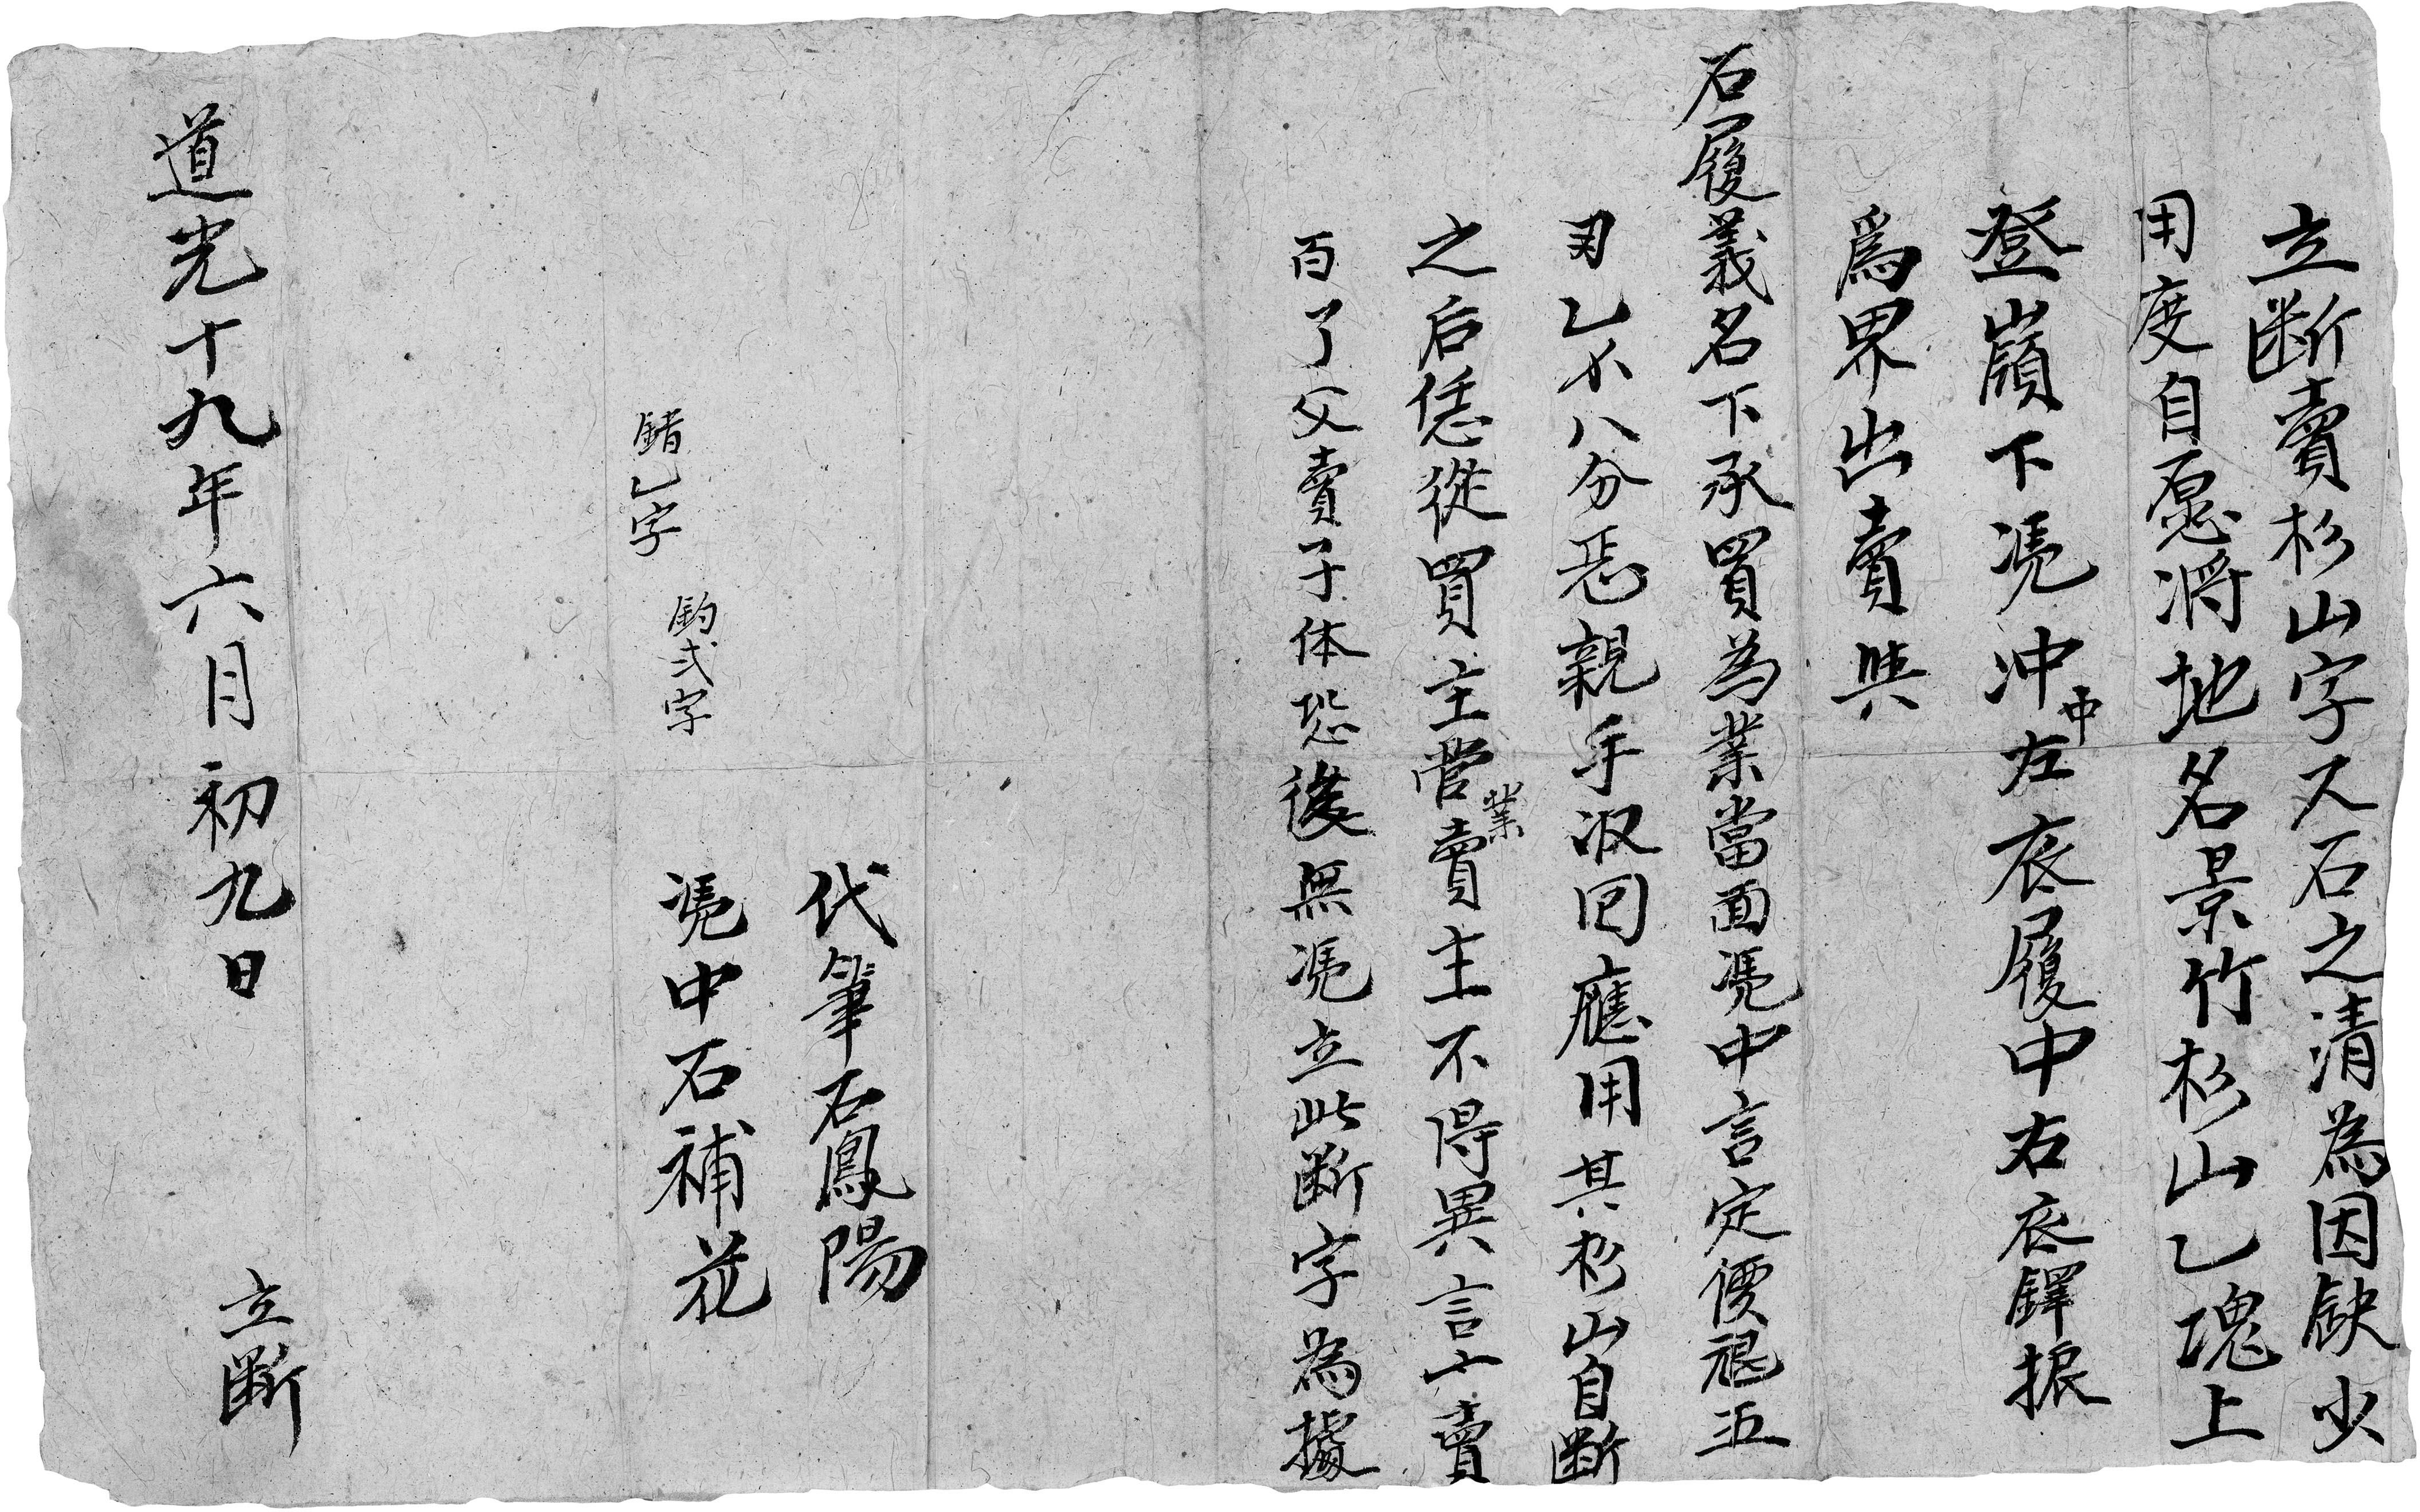 立断賣杉山字人石之清為因缺少
用度自愿将地名景竹杉山乙塊上
登嶺下凴冲中左底履中右底鐸振
為界出賣與
石履義名下承買為業當面凴中言定價艮五
刃乙小八分悉親手収回應用其杉山自断
之后恁從買主管業賣主不得異言一賣
百了父賣子休恐後無凴立此断字為據
代筆石鳳陽
凴中石補花
錯乙字
鈎弍字
道光十九年六月初九日 立断